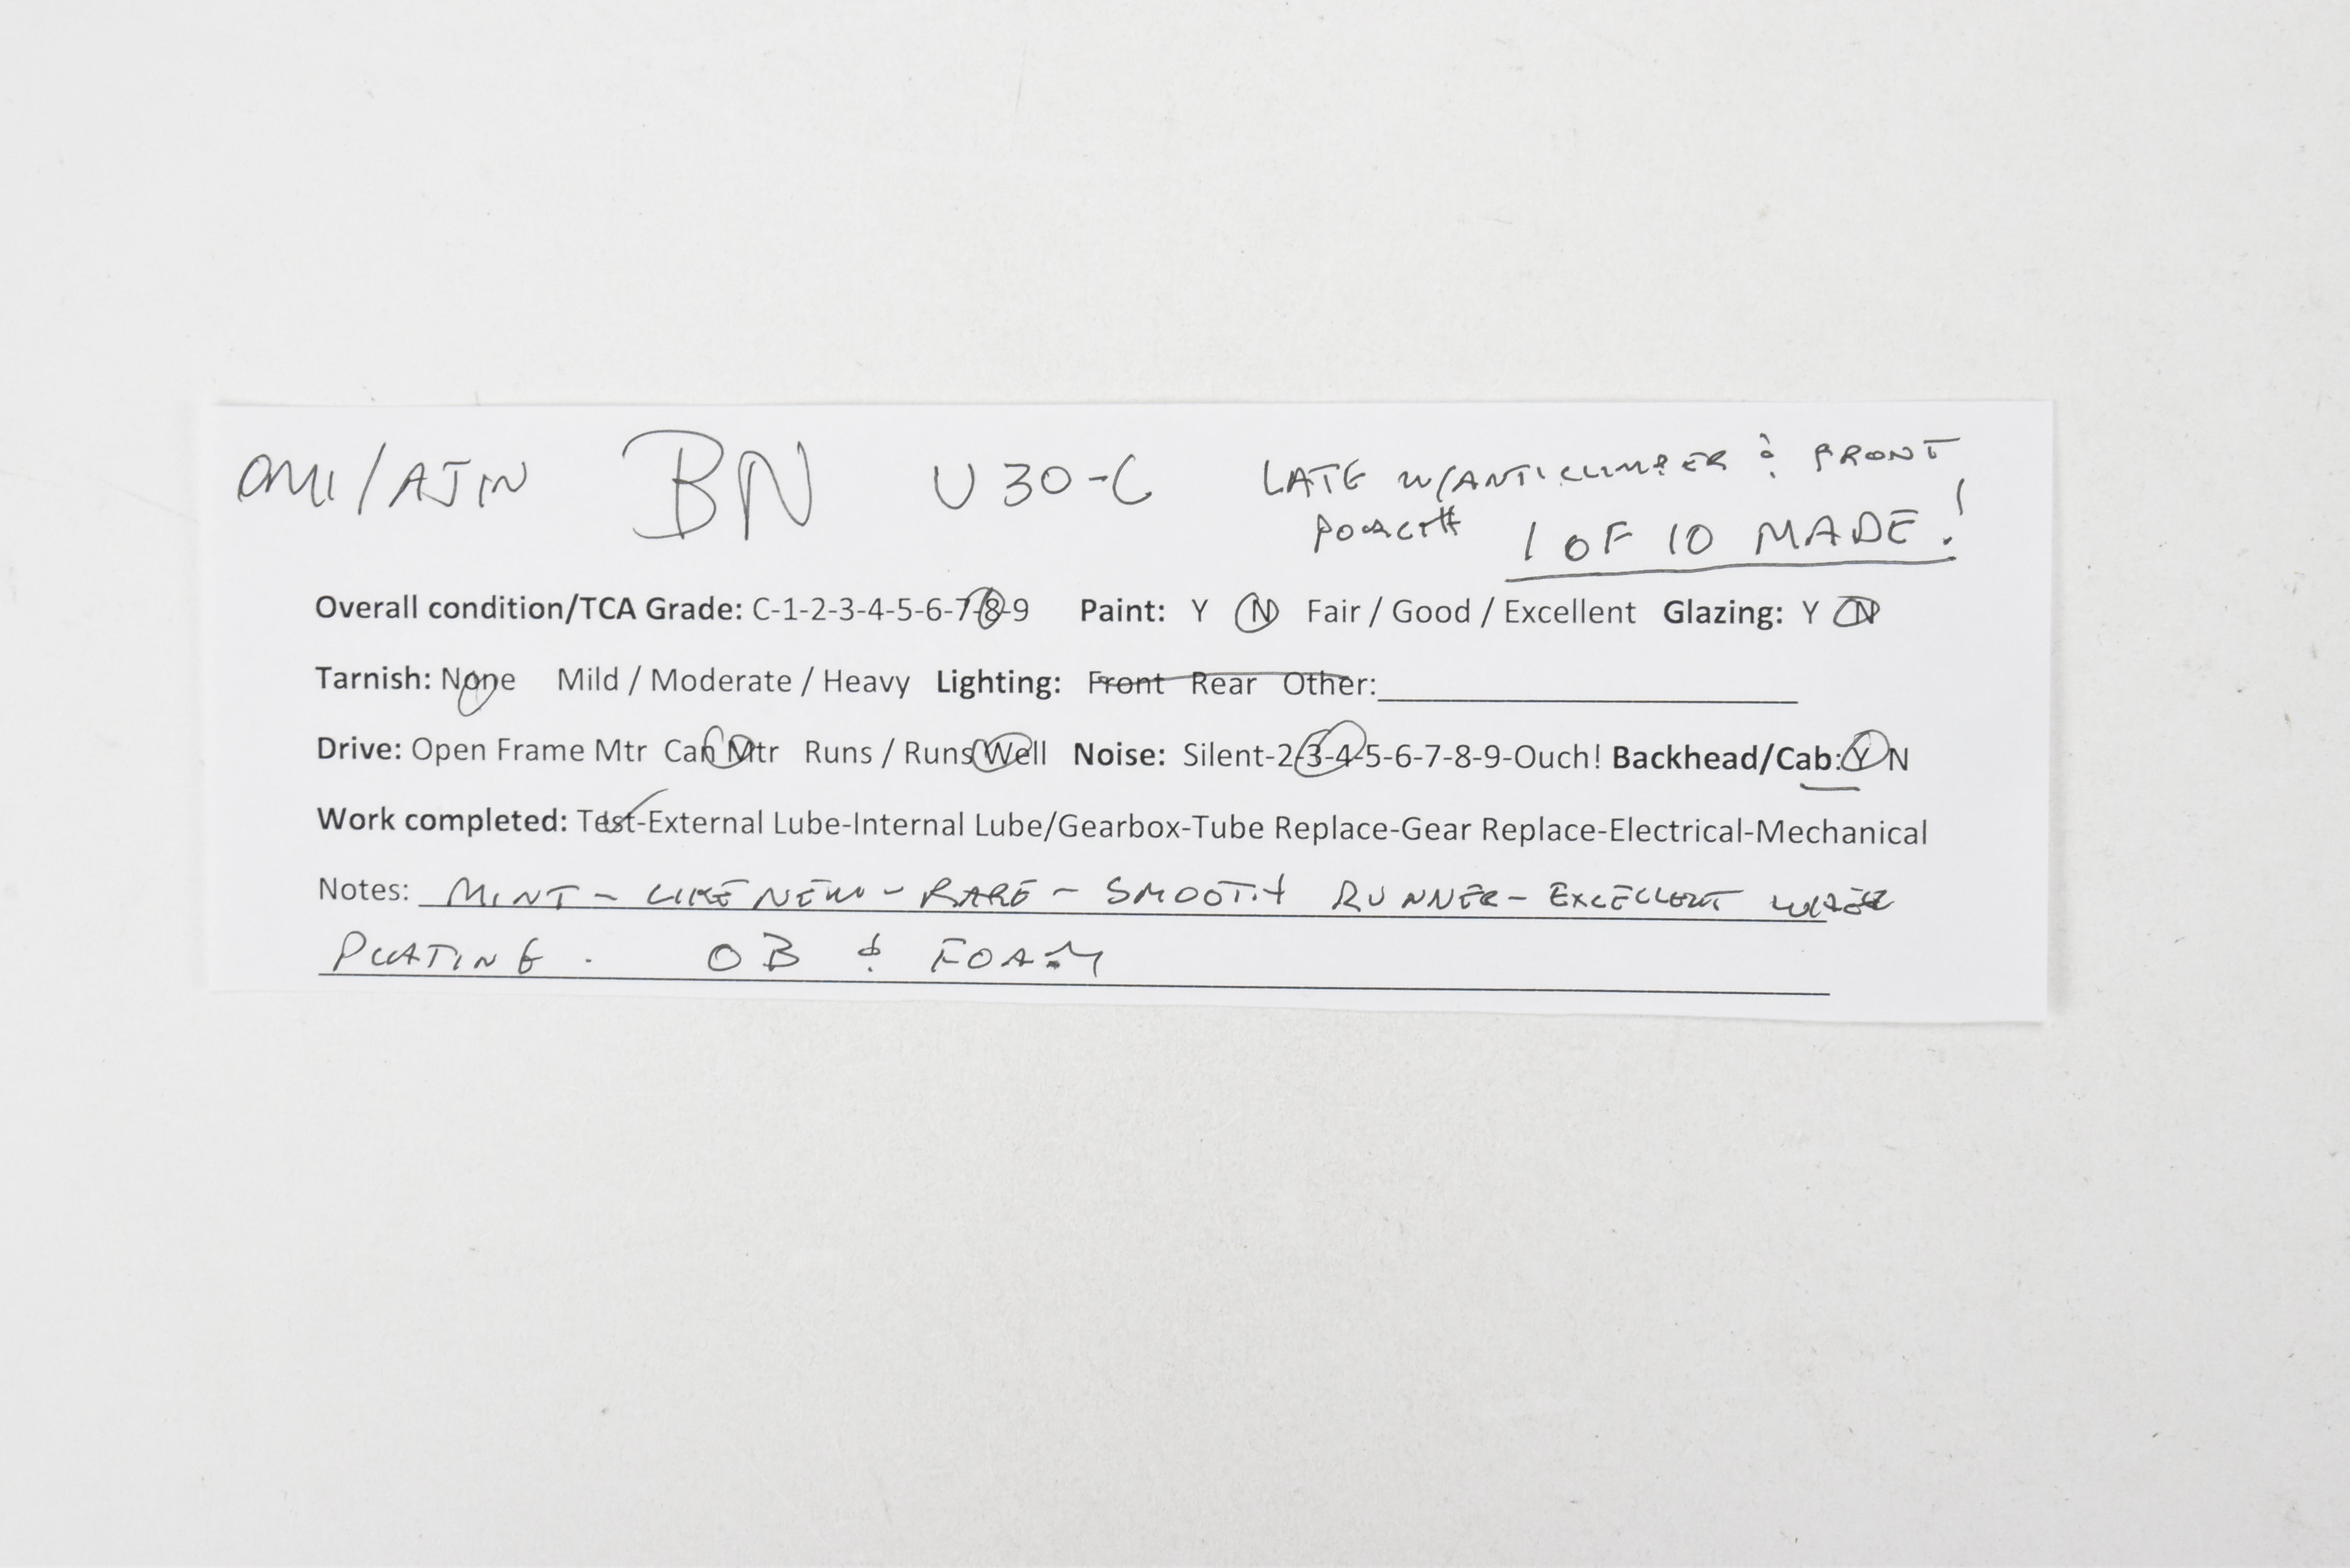 OMI/AJIN BN U30-C LATE W/ANTICLIMBER & FRONT
PORCH 1 OF 10 MADE!
Overall condition/TCA Grade: C-1-2-3-4-5-6-7-8-9 Paint: Y N Fair / Good / Excellent Glazing: Y N
Tarnish: None Mild / Moderate / Heavy Lighting: Front Rear Other:
Drive: Open Frame Mtr Can Mtr Runs / Runs Well Noise: Silent-2-3-4-5-6-7-8-9-Ouch! Backhead/Cab: Y N
Work completed: Test-External Lube-Internal Lube/Gearbox-Tube Replace-Gear Replace-Electrical-Mechanical
Notes: MINT - LIKE NEW - RARE - SMOOTH RUNNER - EXCELLENT
PLATING. OB & FOAM